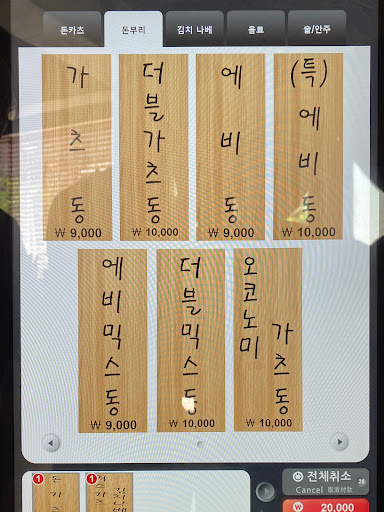 돈카츠
돈부리
김치 나베
음료
술/안주
가츠동
₩ 9,000
더블가츠동
₩ 10,000
에비동
₩ 9,000
(특)에비동
₩ 10,000
에비믹스동
₩ 9,000
더블믹스동
₩ 10,000
오코노미
가츠동
₩ 10,000
1
돈가츠
1
전체취소
28
Cancel 取消付款
₩ 20,000